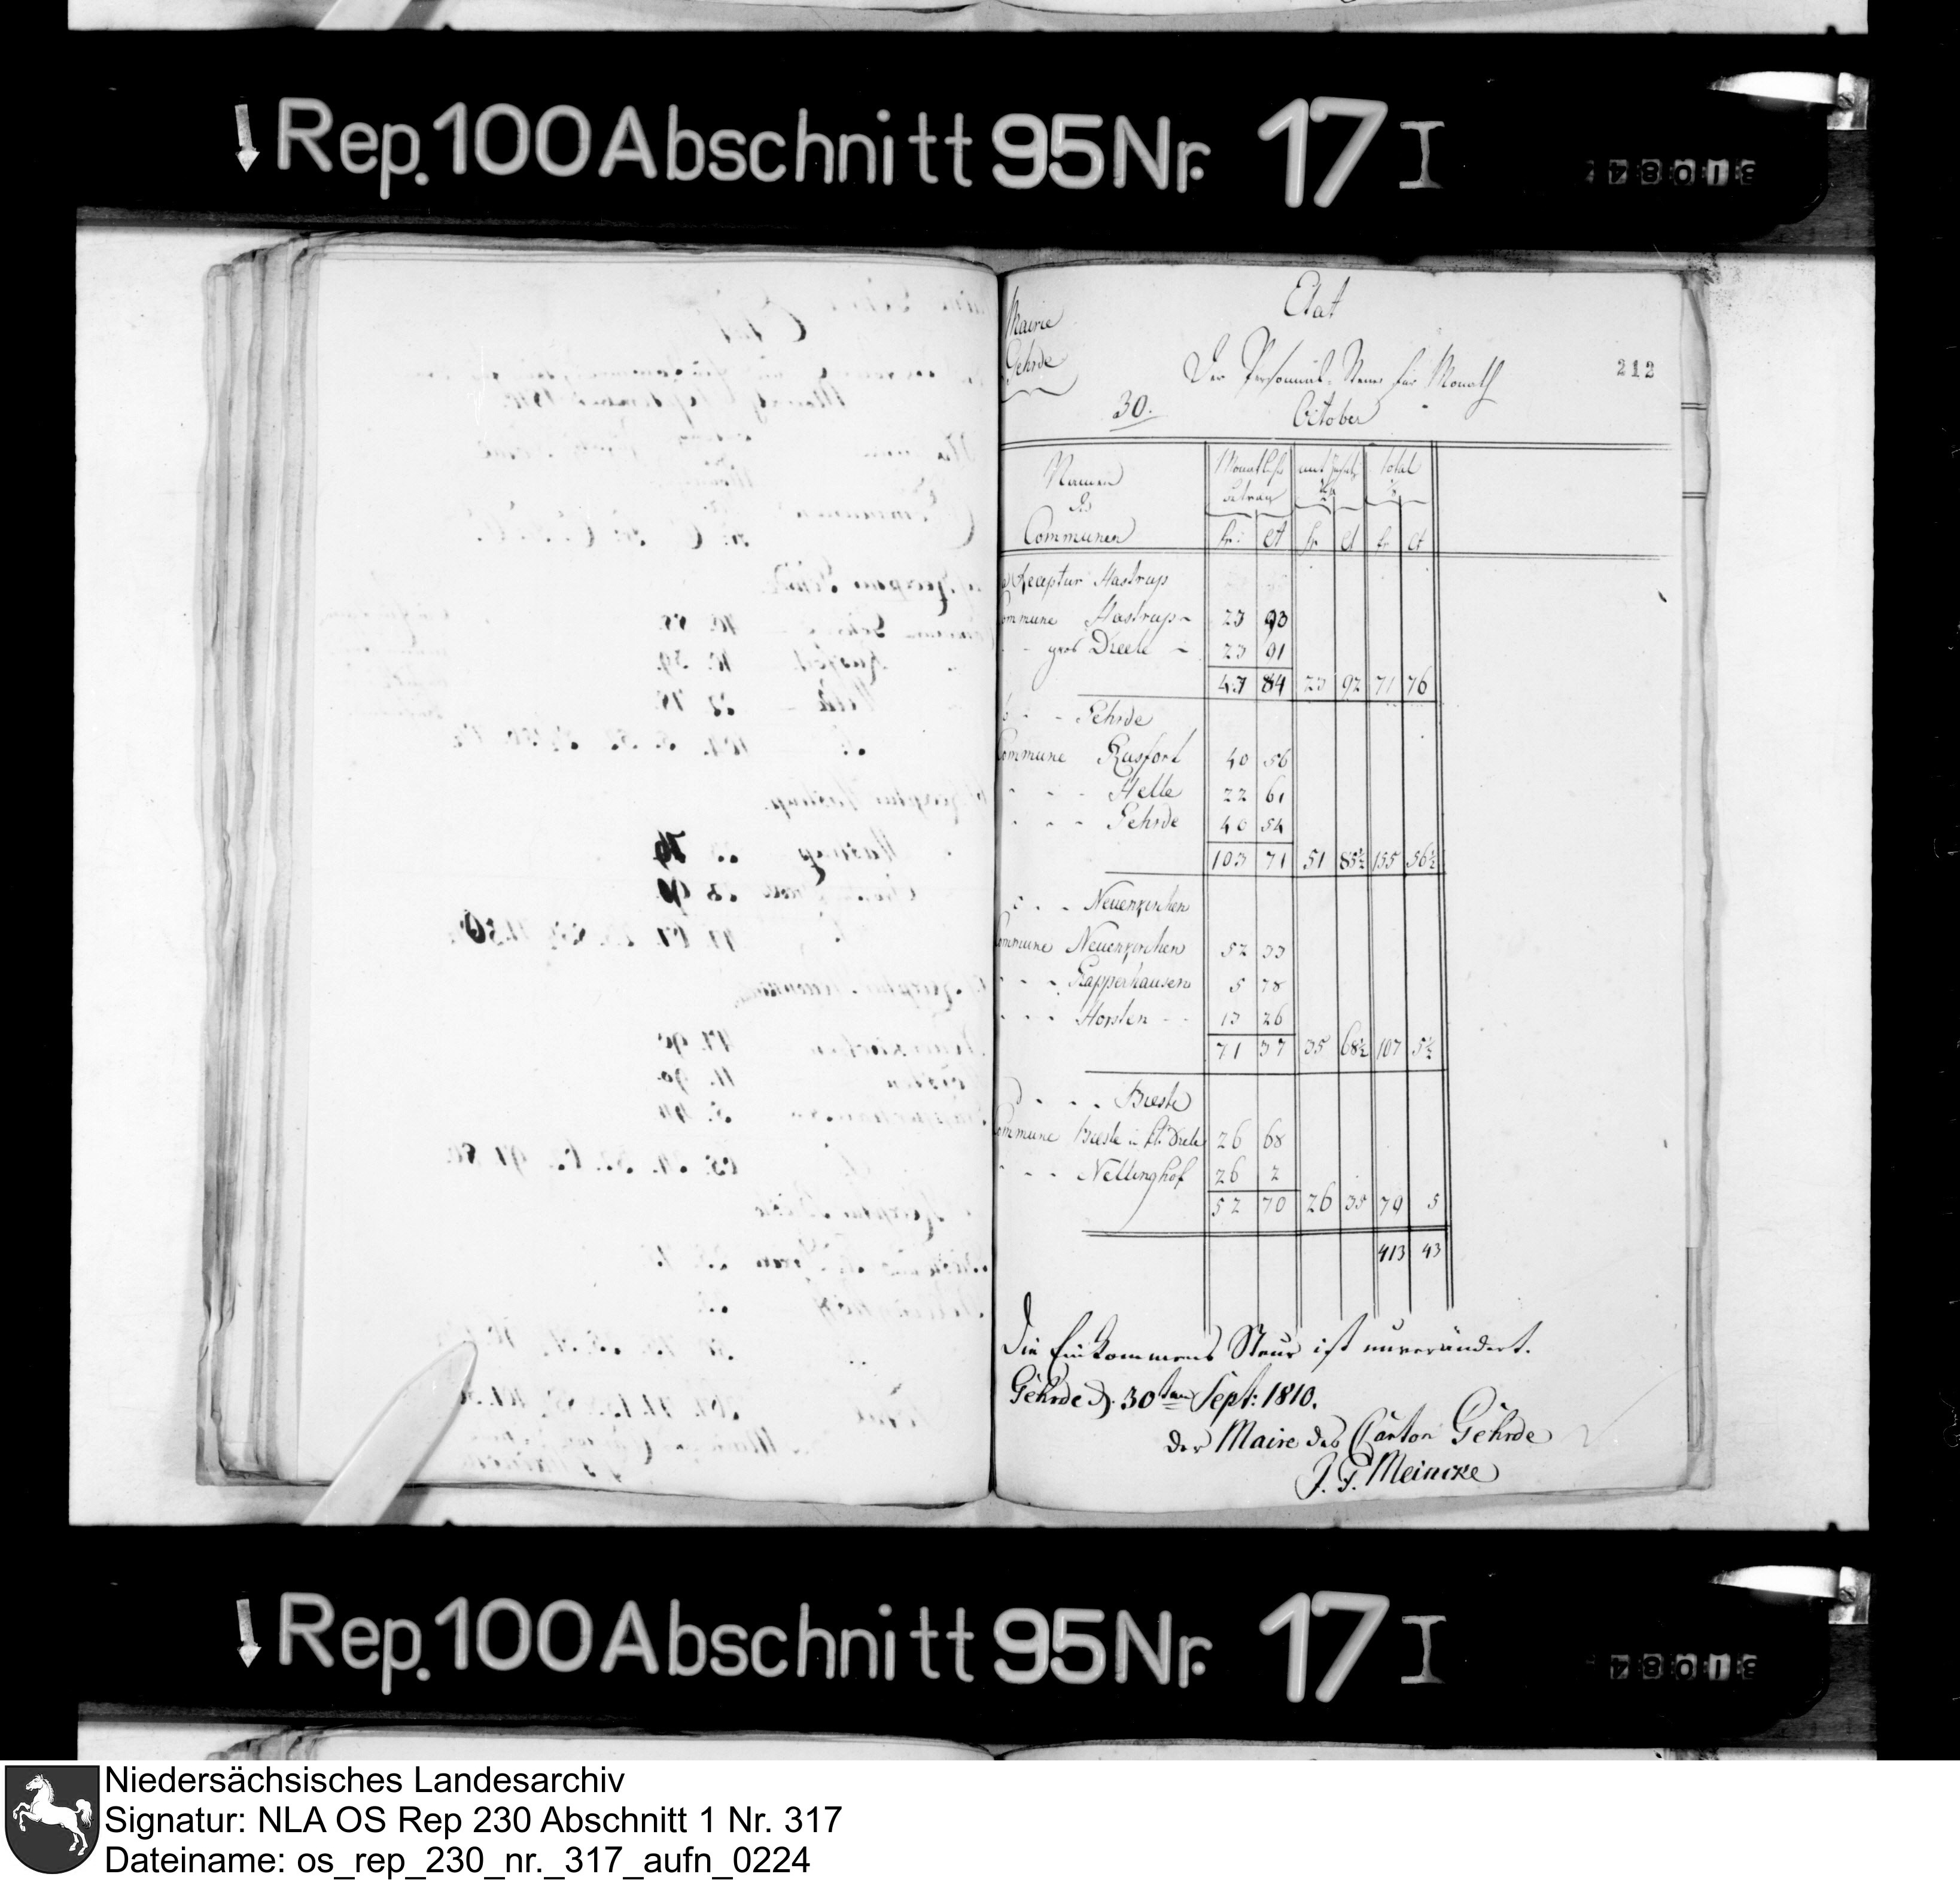 Rep. 100 Abschnitt 95 Nr. 17 I
Mairie
Gehrde
Etat
Der Personal-Steuer für Monath
October
212
30.
Namen
der
Communen
Monatliche
Betrag
mit
total
fr: ct fr ct fr ct
a) Receptur Hastrup
Commune Hastrup 23 93
gros Dreele 23 91
84 23 92 71 76
b - - Gehrde
Commune Rusfort 40 56
- - - Helle 22 61
- - - Gehrde 40 54
103 71 51 85½ 155 56½
c - - Neuenkirchen
Commune Neuenkirchen 52 33
- - - Kapperhausen 5 78
- - - Horsten - - 13 26
71 37 35 68½ 107 5½
d - - - Bieste
Commune Bieste u kl. Drele 26 68
- - - Nellinghof 26 2
52 70 26 35 79 5
413 43
Die Einkommens Steuer ist unverändert.
Gehrde d. 30ten Sept: 1810.
der Maire des Canton Gehrde
J. G. Meincke
Rep. 100 Abschnitt 95 Nr. 17 I
Niedersächsisches Landesarchiv
Signatur: NLA OS Rep 230 Abschnitt 1 Nr. 317
Dateiname: os_rep_230_nr._317_aufn_0224